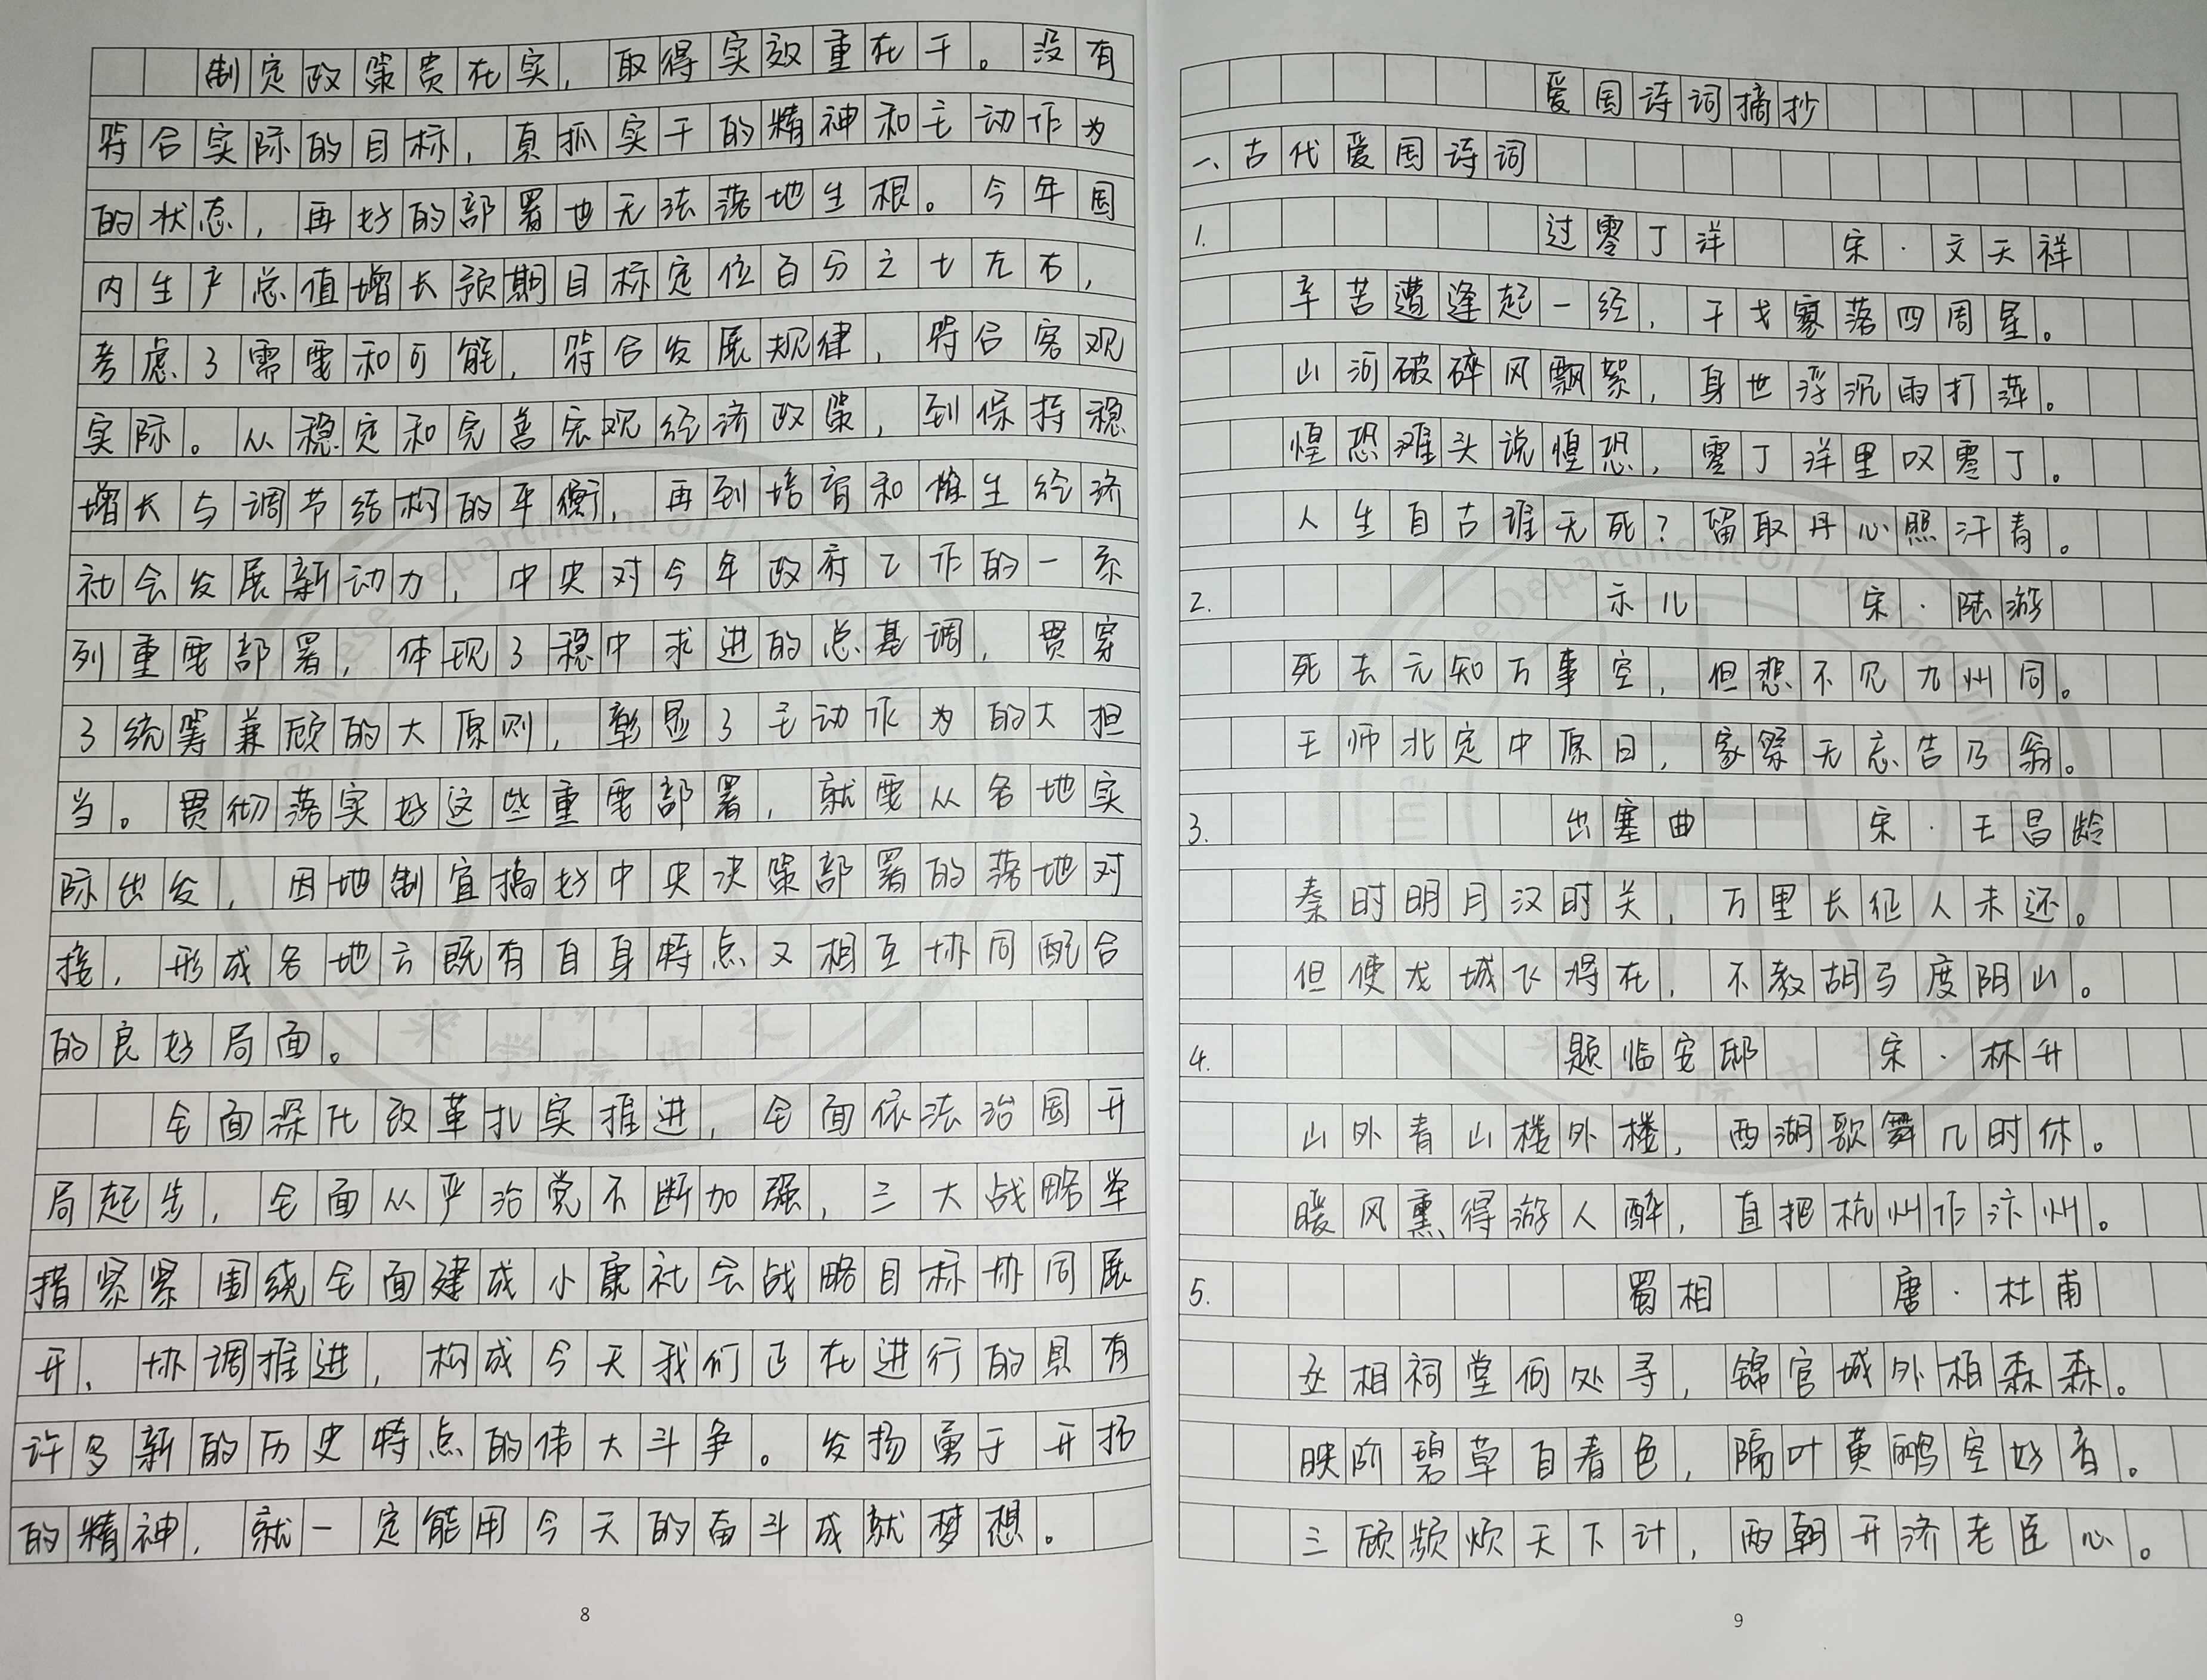 制定政策贵在实，取得实效重在干。没有
符合实际的目标，真抓实干的精神和主动作为
的状态，再好的部署也无法落地生根。今年国
内生产总值增长预期目标定位百分之七左右，
考虑了需要和可能，符合发展规律，符合客观
实际。从稳定和完善宏观经济政策，到保持稳
增长与调节结构的平衡，再到培育和催生经济
社会发展新动力，中央对今年政府工作的一系
列重要部署，体现了稳中求进的总基调，贯穿
了统筹兼顾的大原则，彰显了主动作为的大担
当。贯彻落实好这些重要部署，就要从各地实
际出发，因地制宜搞好中央决策部署的落地对
接，形成各地方既有自身特点又相互协同配合
的良好局面。
全面深化改革扎实推进，全面依法治国开
局起步，全面从严治党不断加强，三大战略举
措紧紧围绕全面建成小康社会战略目标协同展
开、协调推进，构成今天我们正在进行的具有
许多新的历史特点的伟大斗争。发扬勇于开拓
的精神，就一定能用今天的奋斗成就梦想。
8
爱国诗词摘抄
一、古代爱国诗词
1. 过零丁洋 宋·文天祥
辛苦遭逢起一经，干戈寥落四周星。
山河破碎风飘絮，身世浮沉雨打萍。
惶恐滩头说惶恐，零丁洋里叹零丁。
人生自古谁无死？留取丹心照汗青。
2. 示儿 宋·陆游
死去元知万事空，但悲不见九州同。
王师北定中原日，家祭无忘告乃翁。
3. 出塞曲 宋·王昌龄
秦时明月汉时关，万里长征人未还。
但使龙城飞将在，不教胡马度阴山。
4. 题临安邸 宋·林升
山外青山楼外楼，西湖歌舞几时休。
暖风熏得游人醉，直把杭州作汴州。
5. 蜀相 唐·杜甫
丞相祠堂何处寻，锦官城外柏森森。
映阶碧草自春色，隔叶黄鹂空好音。
三顾频烦天下计，两朝开济老臣心。
9